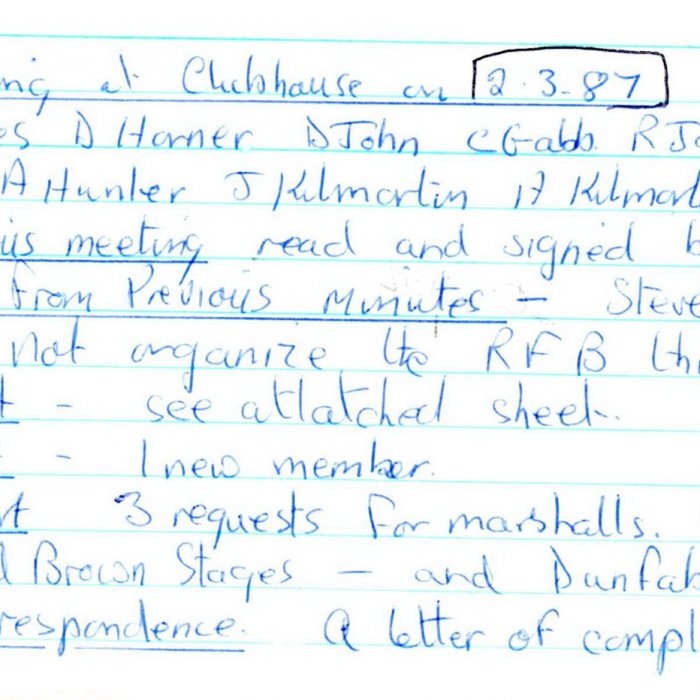 ng at Clubhouse on 2.3-87
es D Horner D John C Gabb R Jo
A Hunter J Kilmartin A Kilmart
us meeting read and signed b
from Previous Minutes - Steve
not organize the RFB thi
t - see atlatched sheet.
- 1 new member.
rt 3 requests for marshalls.
d Brown Stages - and Dunfab
respondence. A letter of compl